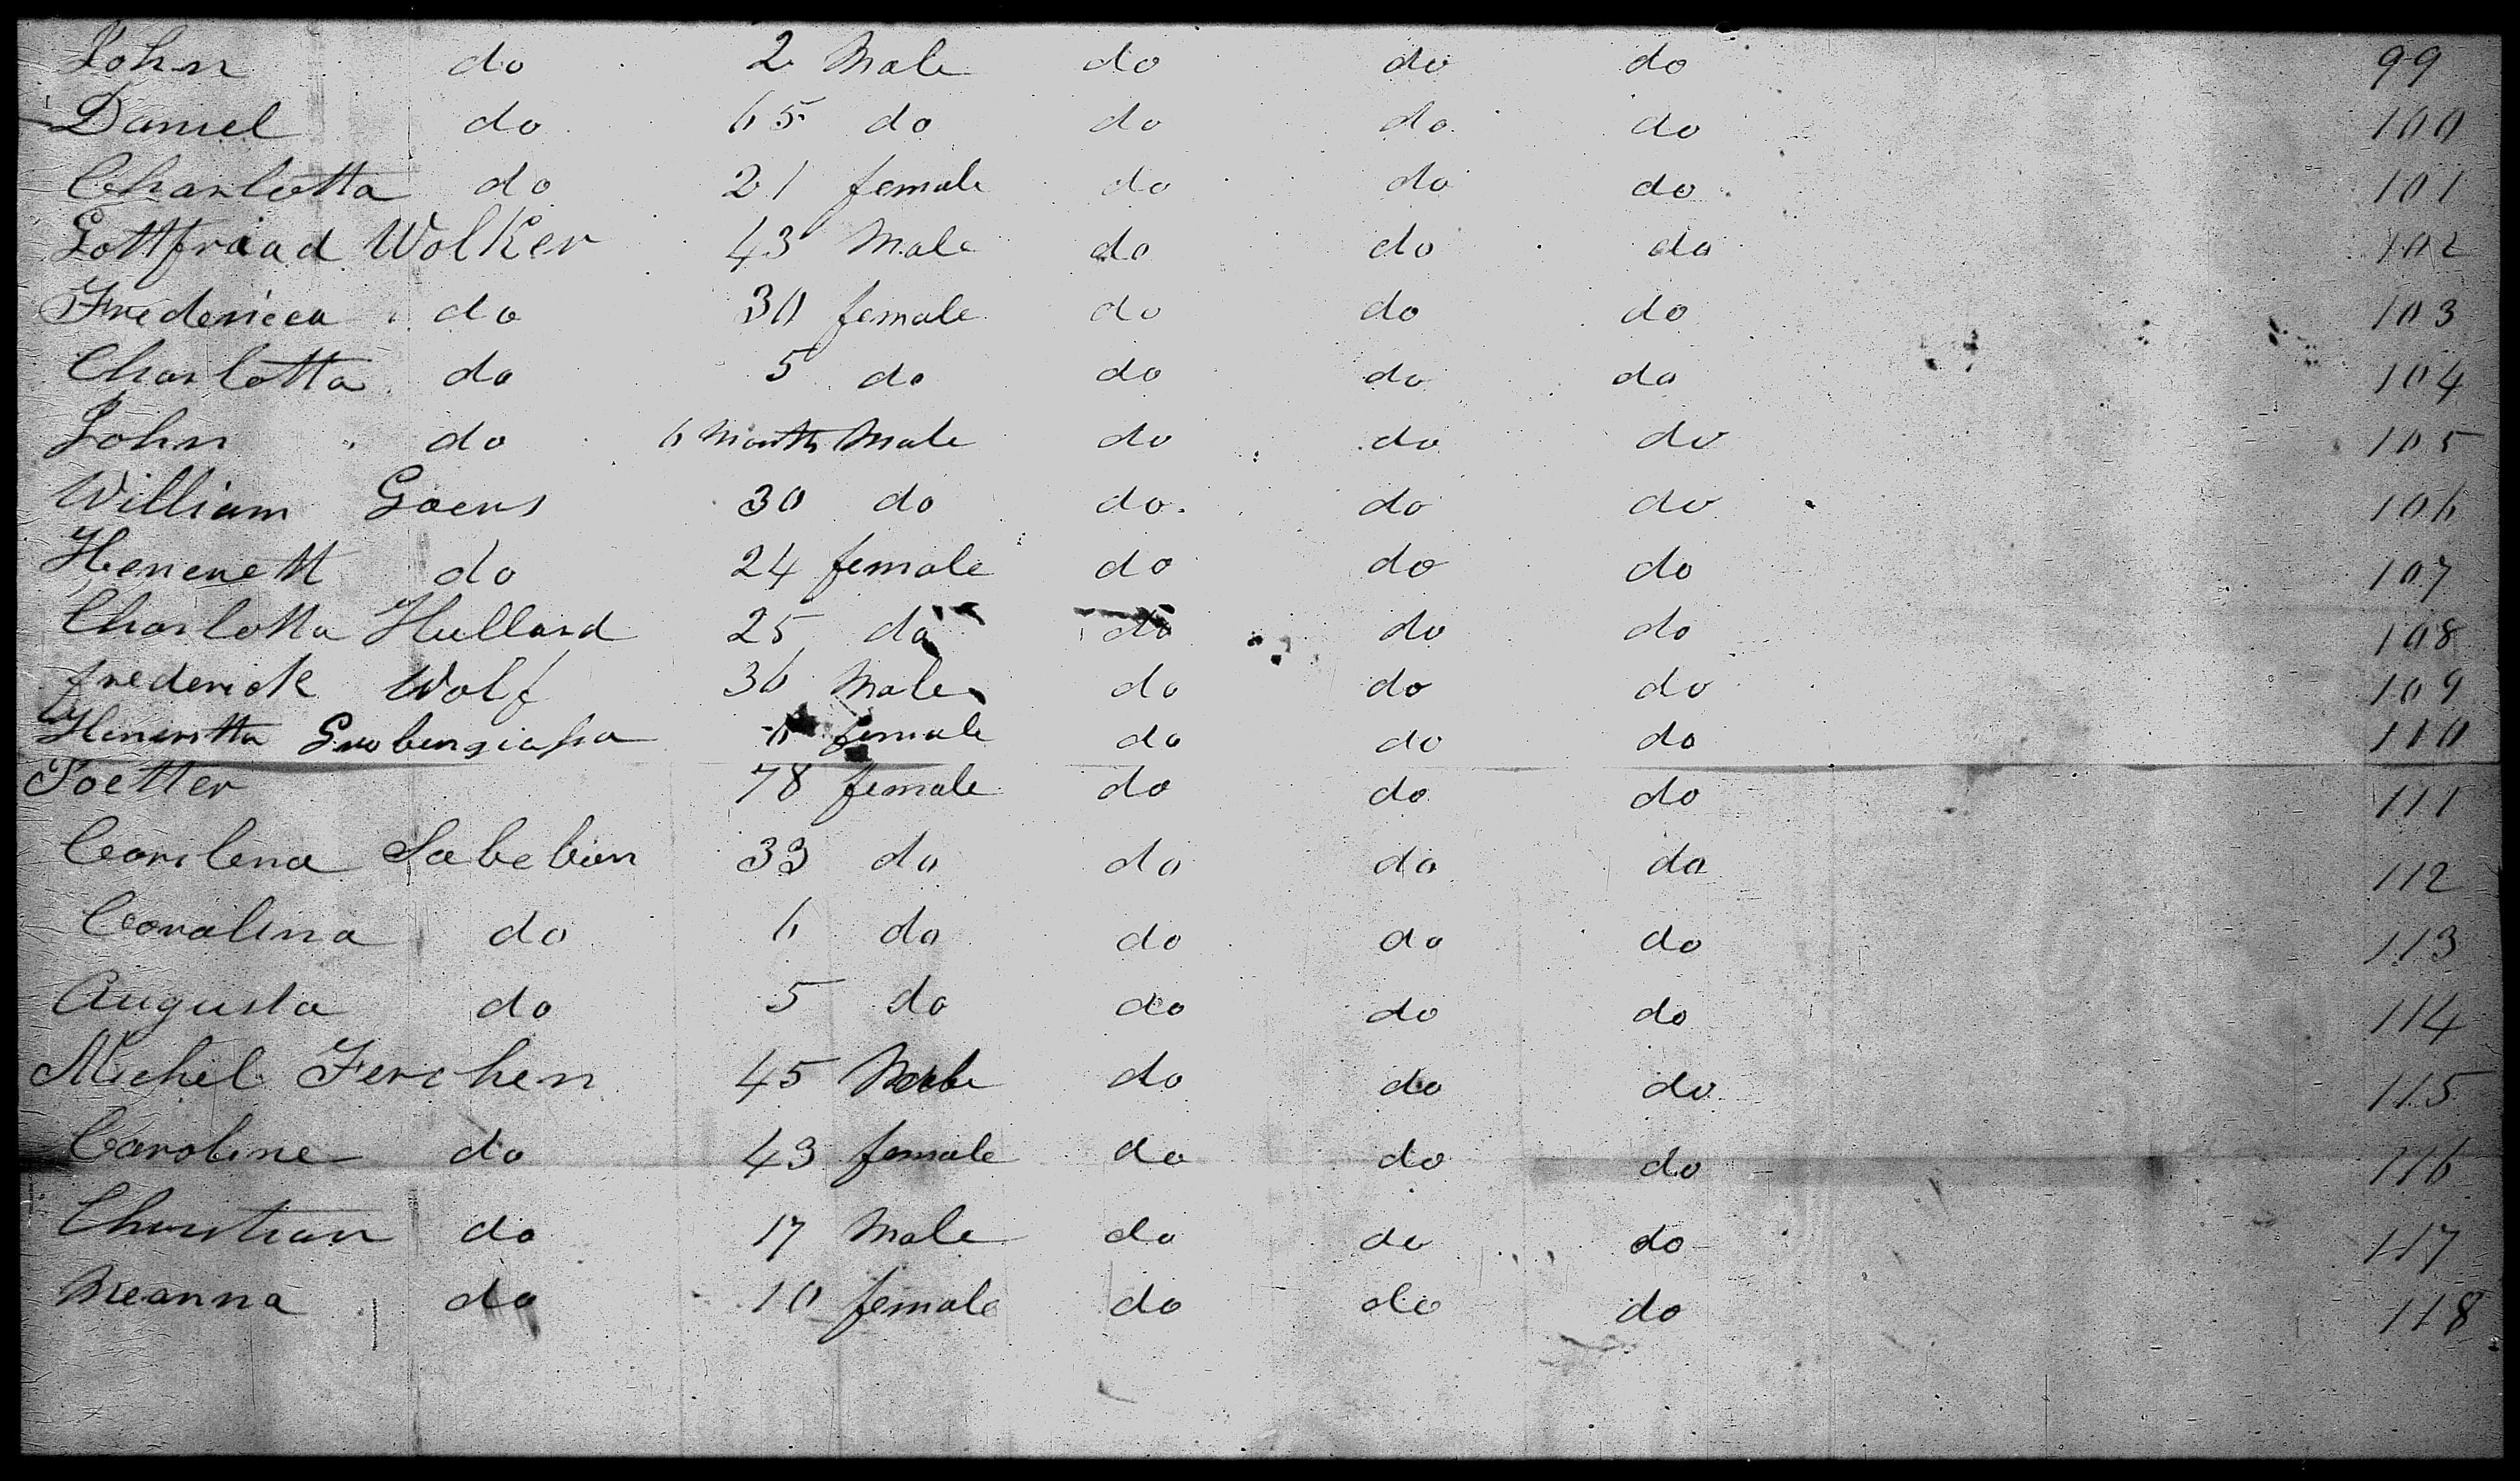 John do 2 Male do do do 99
Daniel do 65 do do do do 100
Charlotta do 21 female do do do 101
Gottfraad Wolker 43 Male do do do 102
Fredericca do 30 female do do do 103
Charlotta do 5 do do do do 104
John do 6 Month Male do do do 105
William Goers 30 do do do do 106
Henerett do 24 female do do do 107
Charlotta Hullard 25 do do do do 108
frederick Wolf 36 Male do do do 109
Henerétta female do do do 110
Toetter 78 female do do do 111
Carilena Sabebon 33 do do do do 112
Caralina do 6 do do do do 113
Augusta do 5 do do do do 114
Michel Ferchen 45 Male do do do 115
Caroline do 43 female do do do 116
Christian do 17 Male do do do 117
Neanna do 10 female do do do 118